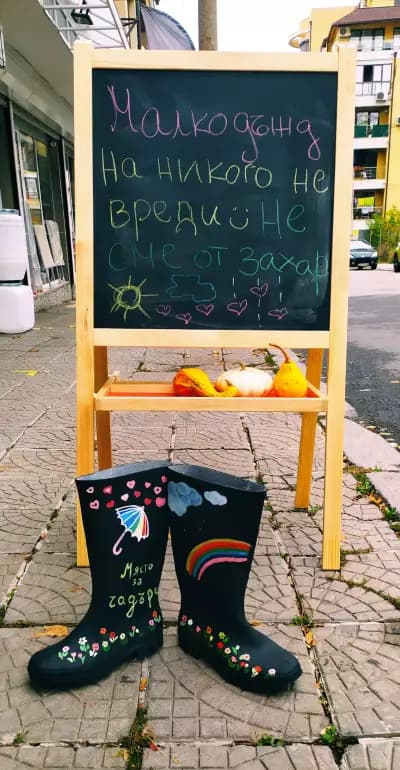 Малко дъжд
на никого не
вреди☺ Не
сме от захар
Място
за
чадъри